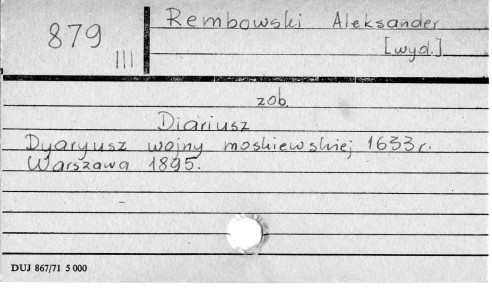 879
III
Rembowski Aleksander
[wyd.]
zob.
Diariusz
Dyaryusz wojny moskiewskiej 1633 r.
Warszawa 1895.
DUJ 867/71 5 000